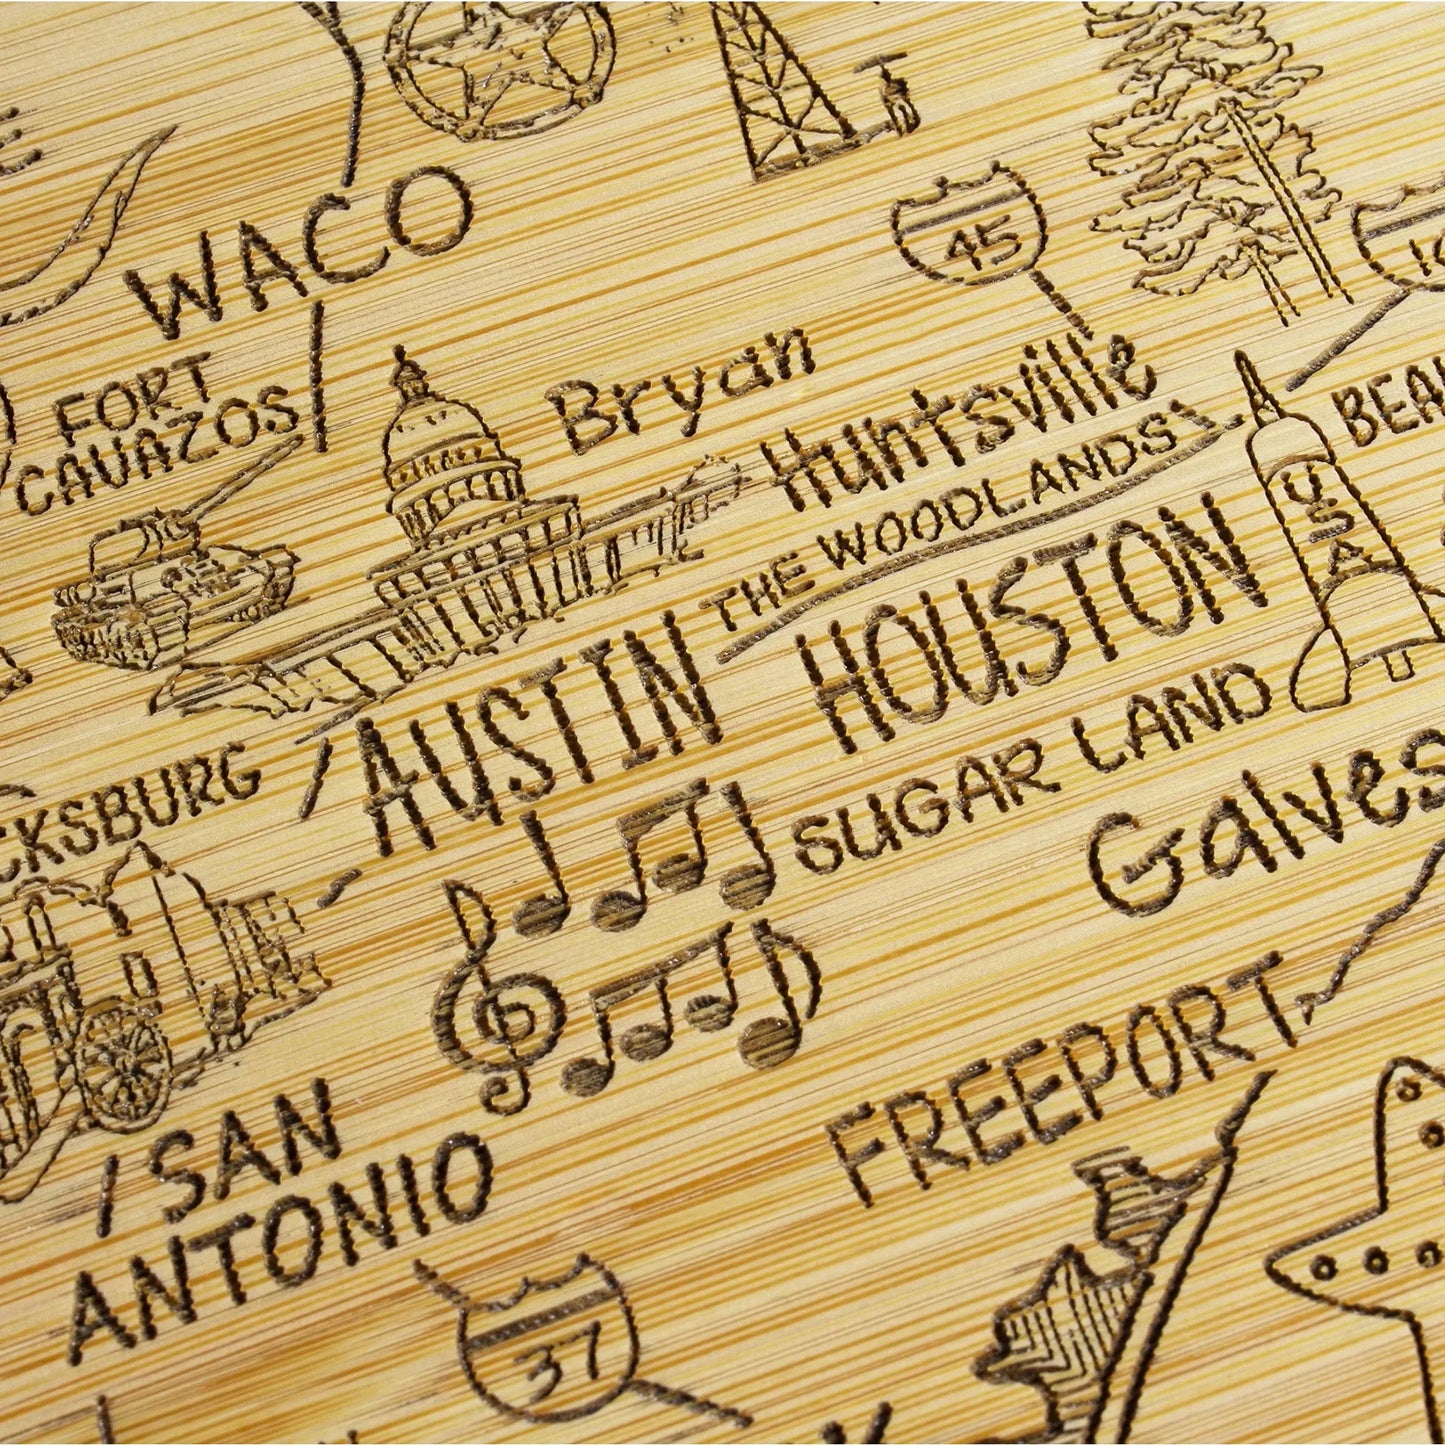 WACO
45
FORT
CAVAZOS
Bryan
Huntsville
THE WOODLANDS
USA
AUSTIN
HOUSTON
SUGAR LAND
CKSBURG
Galves
FREEPORT
SAN
ANTONIO
37
BEAU